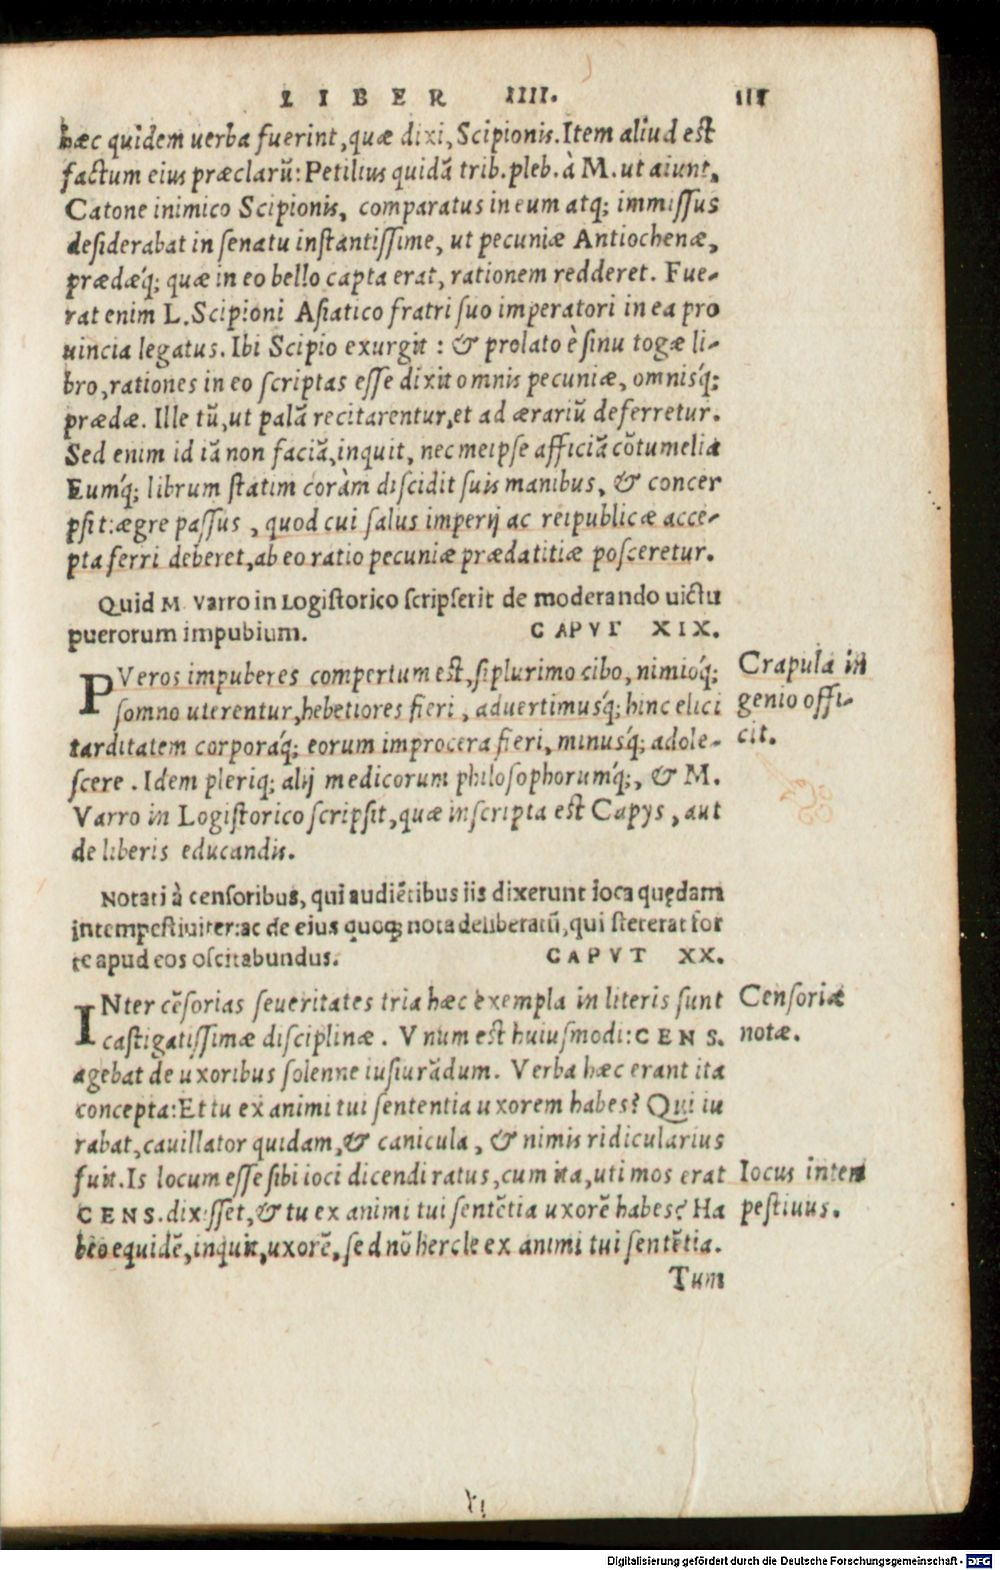 LIBER IIII. 111
hæc quidem uerba fuerint, quæ dixi, Scipionis. Item aliud est
factum eius præclarũ: Petilius quidã trib. pleb. à M. ut aiunt,
Catone inimico Scipionis, comparatus in eum atq; immissus
desiderabat in senatu instantissime, ut pecuniæ Antiochenæ,
prædæq́; quæ in eo bello capta erat, rationem redderet. Fue-
rat enim L. Scipioni Asiatico fratri suo imperatori in ea pro
uincia legatus. Ibi Scipio exurgit: & prolato è sinu togæ li-
bro, rationes in eo scriptas esse dixit omnis pecuniæ, omnisq́;
prædæ. Ille tũ, ut palã recitarentur, et ad ærariũ deferretur.
Sed enim id iã non faciã, inquit, nec meipse afficiã cõtumelia
Eumq́; librum statim coràm discidit suis manibus, & concer
psit: ægre passus, quod cui salus imperij ac reipublicæ acce-
pta ferri deberet, ab eo ratio pecuniæ prædatitiæ posceretur.
Quid M. Varro in Logistorico scripserit de moderando uictu
puerorum impubium. CAPVT XIX.
PVeros impuberes compertum est, si plurimo cibo, nimioq́;
somno uterentur, hebetiores fieri, aduertimusq́; hinc elici
tarditatem corporaq́; eorum improcera fieri, minusq́; adole-
scere. Idem pleriq; alij medicorum philosophorumq́;, & M.
Varro in Logistorico scripsit, quæ inscripta est Capys, aut
de liberis educandis.
Crapula in
genio offi-
cit.
Notati à censoribus, qui audiẽtibus iis dixerunt ioca quędam
intempestiuiter: ac de eius quoq; nota deliberatũ, qui steterat for
te apud eos oscitabundus. CAPVT XX.
INter cẽsorias seueritates tria hæc exempla in literis sunt
castigatissimæ disciplinæ. Vnum est huiusmodi: CENS.
agebat de uxoribus solenne iusiurãdum. Verba hæc erant ita
concepta: Et tu ex animi tui sententia uxorem habes? Qui iu
rabat, cauillator quidam, & canicula, & nimis ridicularius
fuit. Is locum esse sibi ioci dicendi ratus, cum ita, uti mos erat
CENS. dixisset, & tu ex animi tui sentẽtia uxorẽ habes? Ha
beo equidẽ, inquit, uxorẽ, sed nõ hercle ex animi tui sentẽtia.
Censoriæ
notæ.
Iocus intem
pestiuus.
Tum
Digitalisierung gefördert durch die Deutsche Forschungsgemeinschaft - DFG